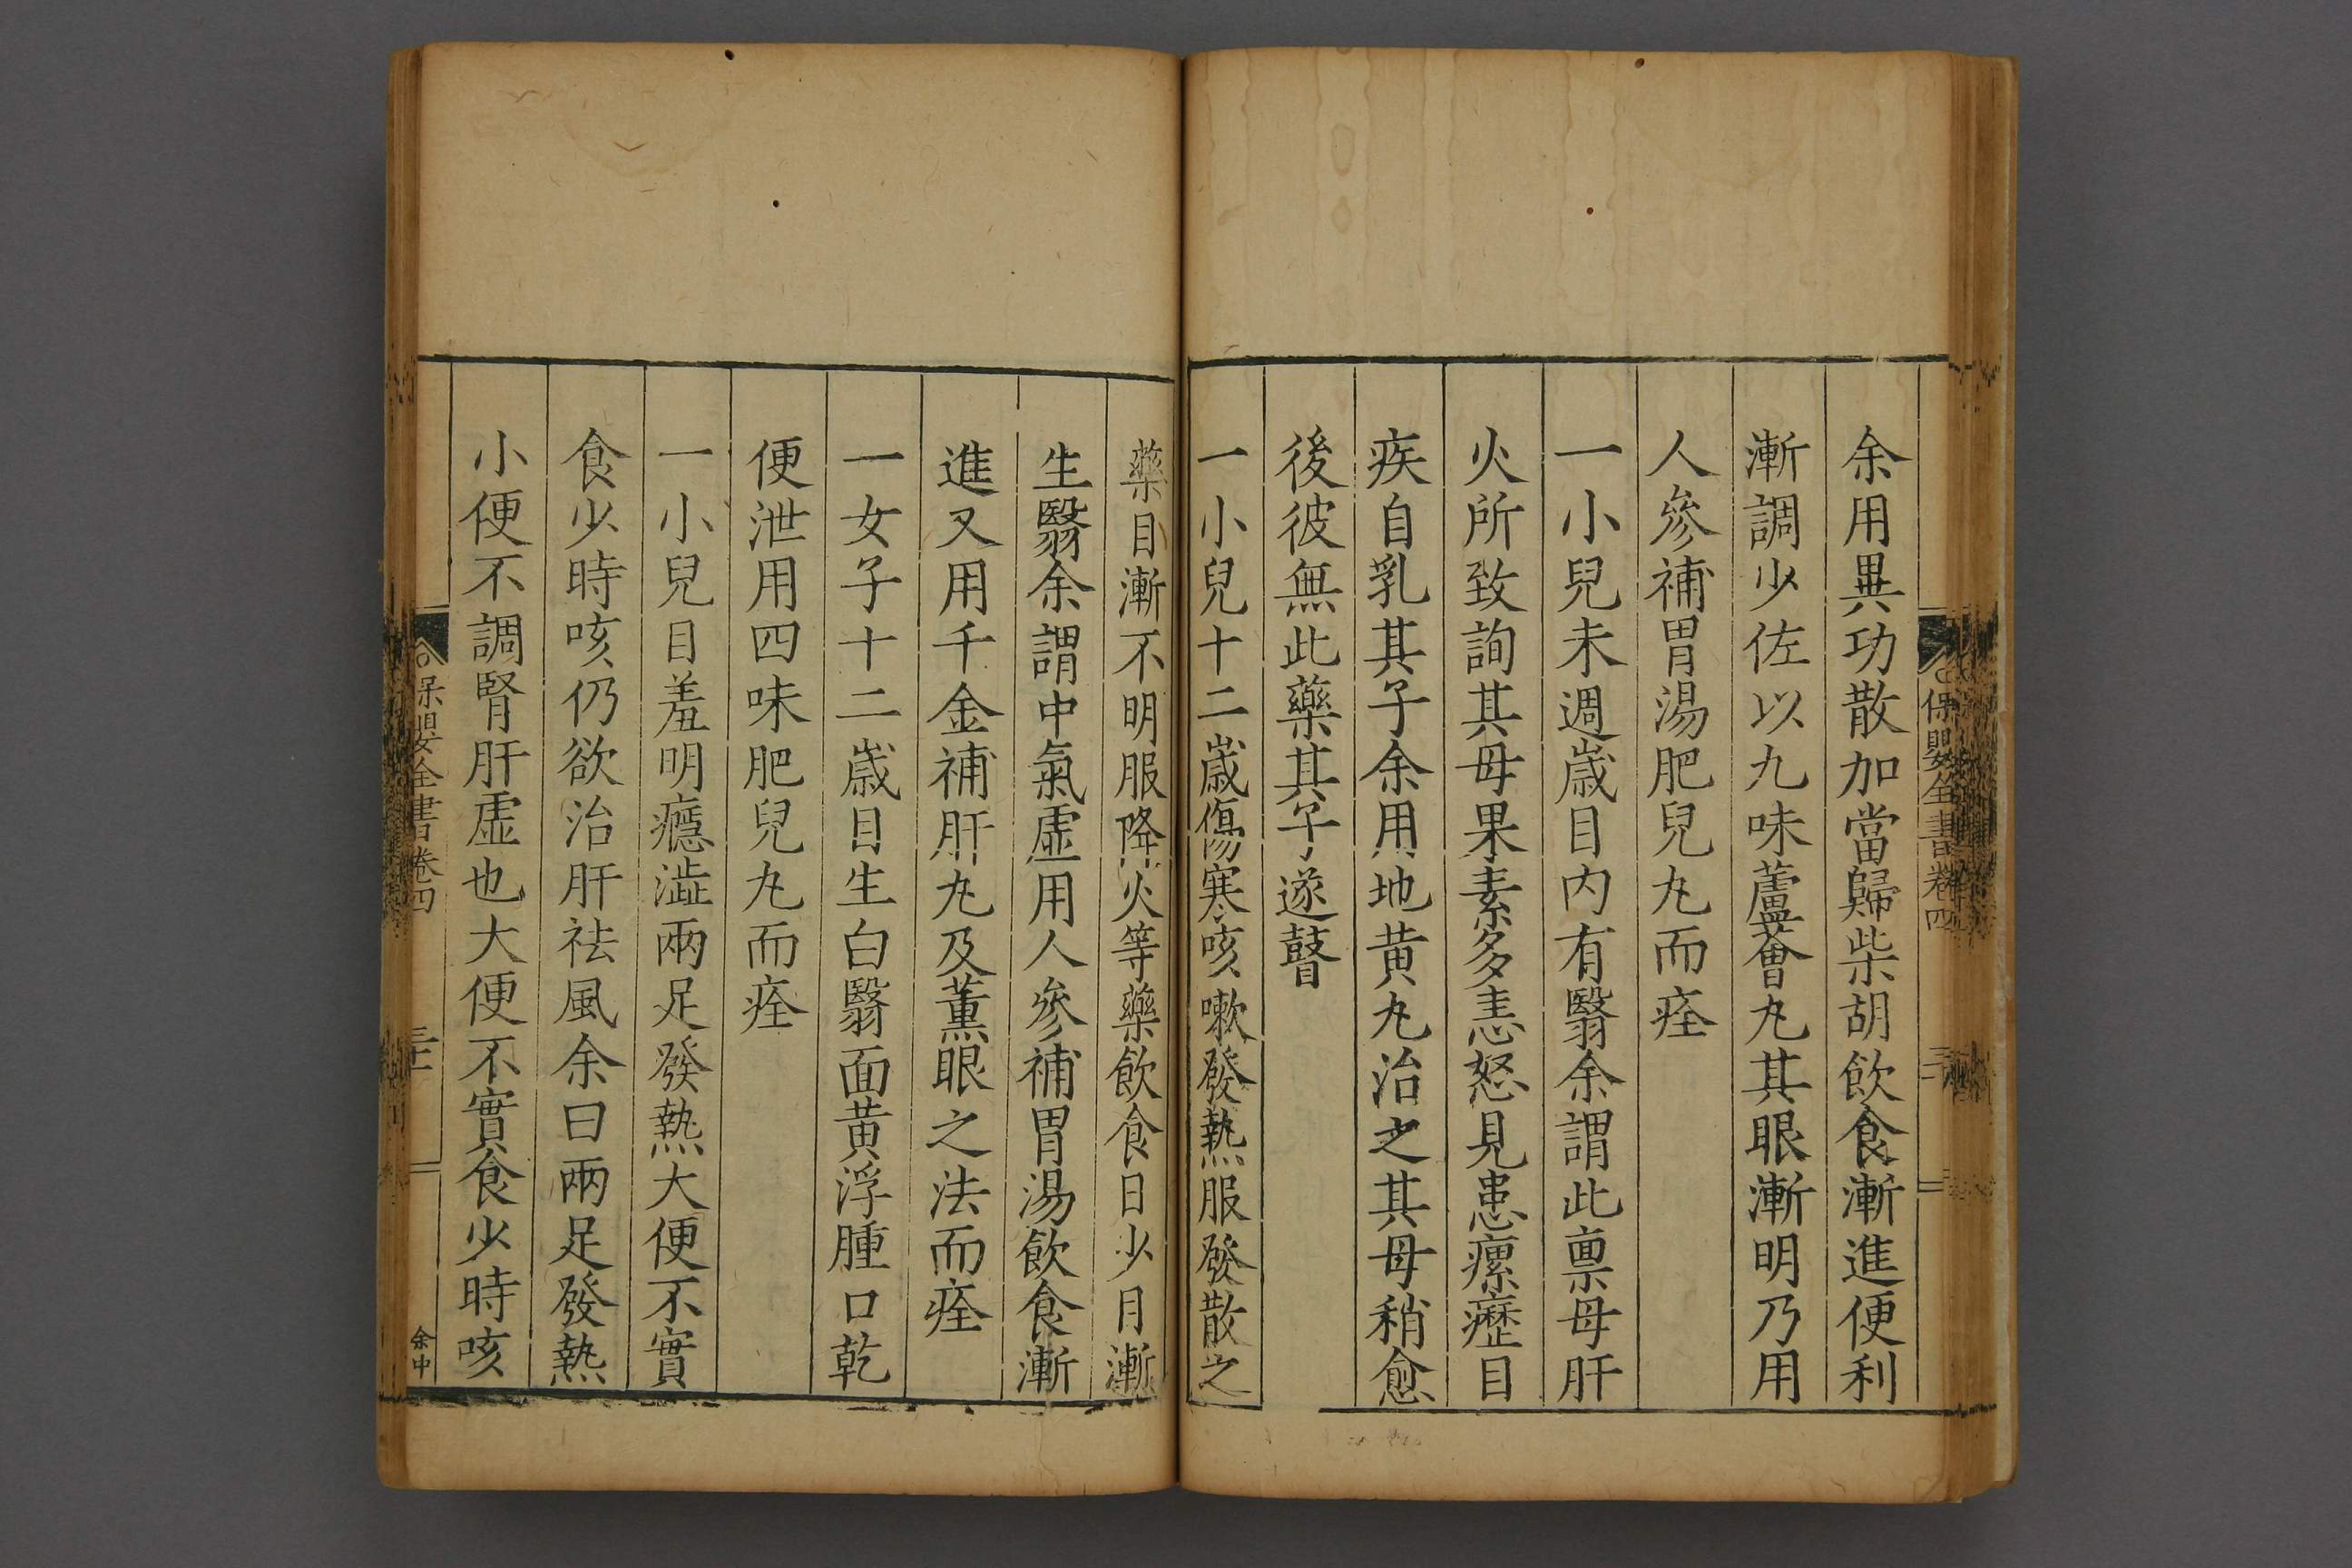 余用異功散加當歸柴胡飲食漸進便利
漸調少佐以九味蘆薈丸其眼漸明乃用
人參補胃湯肥兒丸而痊
一小兒未週歲目内有翳余謂此禀母肝
火所致詢其母果素多恚怒見患瘰癧目
疾自乳其子余用地黄丸治之其母稍愈
後彼無此藥其子遂瞽
一小兒十二歲傷寒咳嗽發熱服發散之
藥目漸不明服降火等藥飲食日少月漸
生翳余謂中氣虛用人參補胃湯飲食漸
進又用千金補肝丸及薰眼之法而痊
一女子十二歲目生白翳面黄浮腫口乾
便泄用四味肥兒丸而痊
一小兒目羞明癮澁兩足發熱大便不實
食少時咳仍欲治肝祛風余曰兩足發熱
小便不調腎肝虛也大便不實食少時咳
保嬰全書卷四
保嬰全書卷四
余中